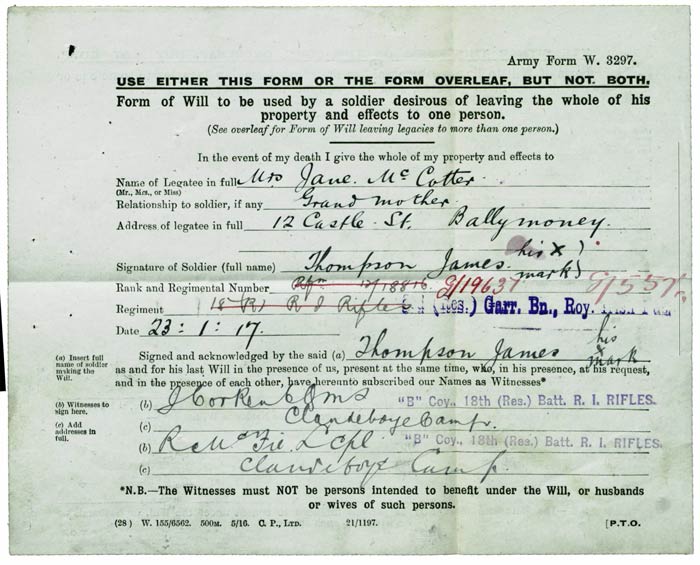 Army Form W. 3297.
USE EITHER THIS FORM OR THE FORM OVERLEAF, BUT NOT BOTH.
Form of Will to be used by a soldier desirous of leaving the whole of his
property and effects to one person.
(See overleaf for Form of Will leaving legacies to more than one person.)
In the event of my death I give the whole of my property and effects to
Name of Legatee in full Mrs Jane. McCotter
(Mr., Mrs., or Miss)
Relationship to soldier, if any Grand mother
Address of legatee in full 12 Castle St. Ballymoney.
his X
Signature of Soldier (full name) Thompson James. mark
Rank and Regimental Number Rfn 18816 G/19637 G/1557
Regiment 18 (R) R I Rifles (Res.) Garr. Bn., Roy.
Date 23:1:17.
his
Signed and acknowledged by the said (a) Thompson James x mark
(a) Insert full name of soldier making the Will.
as and for his last Will in the presence of us, present at the same time, who, in his presence, at his request,
and in the presence of each other, have hereunto subscribed our Names as Witnesses*
(b) Witnesses to sign here.
(b) J Corken "B" Coy., 18th (Res.) Batt. R. I. RIFLES.
(c) Add addresses in full.
(c) Clandeboye Camp.
(b) L/Cpl "B" Coy., 18th (Res.) Batt. R. I. RIFLES.
(c) Clandeboye Camp.
*N.B.—The Witnesses must NOT be persons intended to benefit under the Will, or husbands
or wives of such persons.
(28) W. 155/6562. 500M. 5/16. C. P., LTD. 21/1197. [P.T.O.